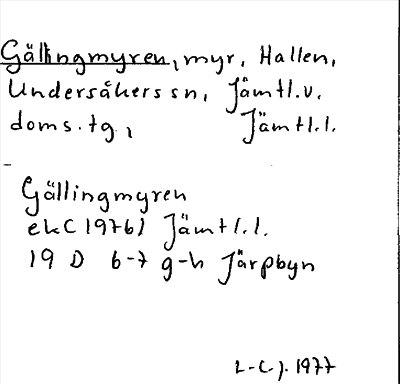 Gällingmyren, myr, Hallen,
Undersåkers sn, Jämtl.v.
doms.tg, Jämtl.l.
Gällingmyren
ekC1976) Jämtl.l.
19 D 6-7 g-h Järpbyn
L-C.J. 1977